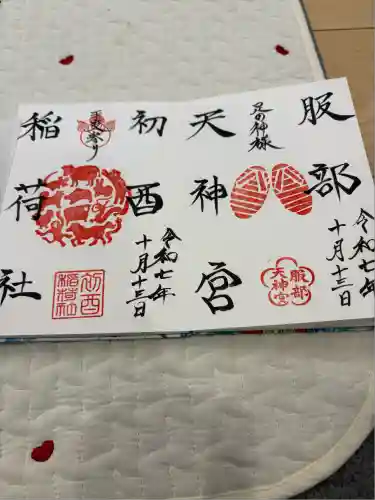 服部
足の神様
天神宮
服部
天神宮
令和七年
十月十三日
初酉
稲荷社
初酉
稲荷社
令和七年
十月十三日